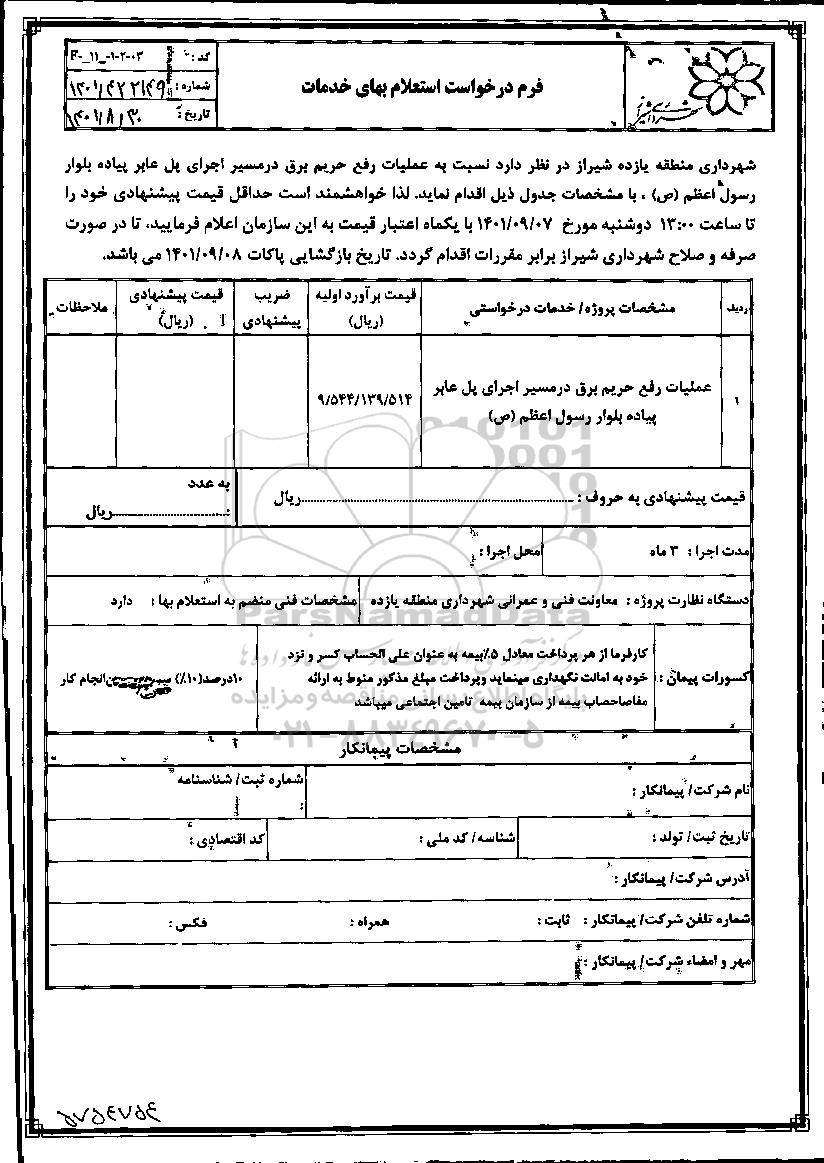 فرم درخواست استعلام بهای خدمات
کد : F-_11_-1-2-03
شماره :
تاریخ : ۱۴۰۱/۸/۳۰
شهرداری منطقه یازده شیراز در نظر دارد نسبت به عملیات رفع حریم برق درمسیر اجرای پل عابر پیاده بلوار
رسول اعظم (ص) ، با مشخصات جدول ذیل اقدام نماید. لذا خواهشمند است حداقل قیمت پیشنهادی خود را
تا ساعت ۱۳:۰۰ دوشنبه مورخ ۱۴۰۱/۰۹/۰۷ با یکماه اعتبار قیمت به این سازمان اعلام فرمایید، تا در صورت
صرفه و صلاح شهرداری شیراز برابر مقررات اقدام گردد. تاریخ بازگشایی پاکات ۱۴۰۱/۰۹/۰۸ می باشد.
ردیف مشخصات پروژه/ خدمات درخواستی قیمت برآورد اولیه (ریال) ضریب پیشنهادی قیمت پیشنهادی (ریال) ملاحظات
۱ عملیات رفع حریم برق درمسیر اجرای پل عابر ۹/۵۴۴/۱۳۹/۵۱۴
پیاده بلوار رسول اعظم (ص)
قیمت پیشنهادی به حروف : ........................ریال به عدد
:........................ریال
مدت اجرا : ۳ ماه محل اجرا :
دستگاه نظارت پروژه : معاونت فنی و عمرانی شهرداری منطقه یازده مشخصات فنی منضم به استعلام بها : دارد
کسورات پیمان : کارفرما از هر پرداخت معادل ۵٪بیمه به عنوان علی الحساب کسر و نزد
خود به امانت نگهداری مینماید وپرداخت مبلغ مذکور منوط به ارائه
مفاصاحصاب بیمه از سازمان بیمه تامین اجتماعی میباشد
۱۰درصد(۱۰٪) انجام کار
مشخصات پیمانکار
نام شرکت/ پیمانکار : شماره ثبت/ شناسنامه :
تاریخ ثبت/ تولد : شناسه/ کد ملی : کد اقتصادی :
آدرس شرکت/ پیمانکار :
شماره تلفن شرکت/ پیمانکار : ثابت : همراه : فکس :
مهر و امضاء شرکت/ پیمانکار :
ParsNamadData
۰۲۱-۸۸۳۴۹۶۷۰-۵